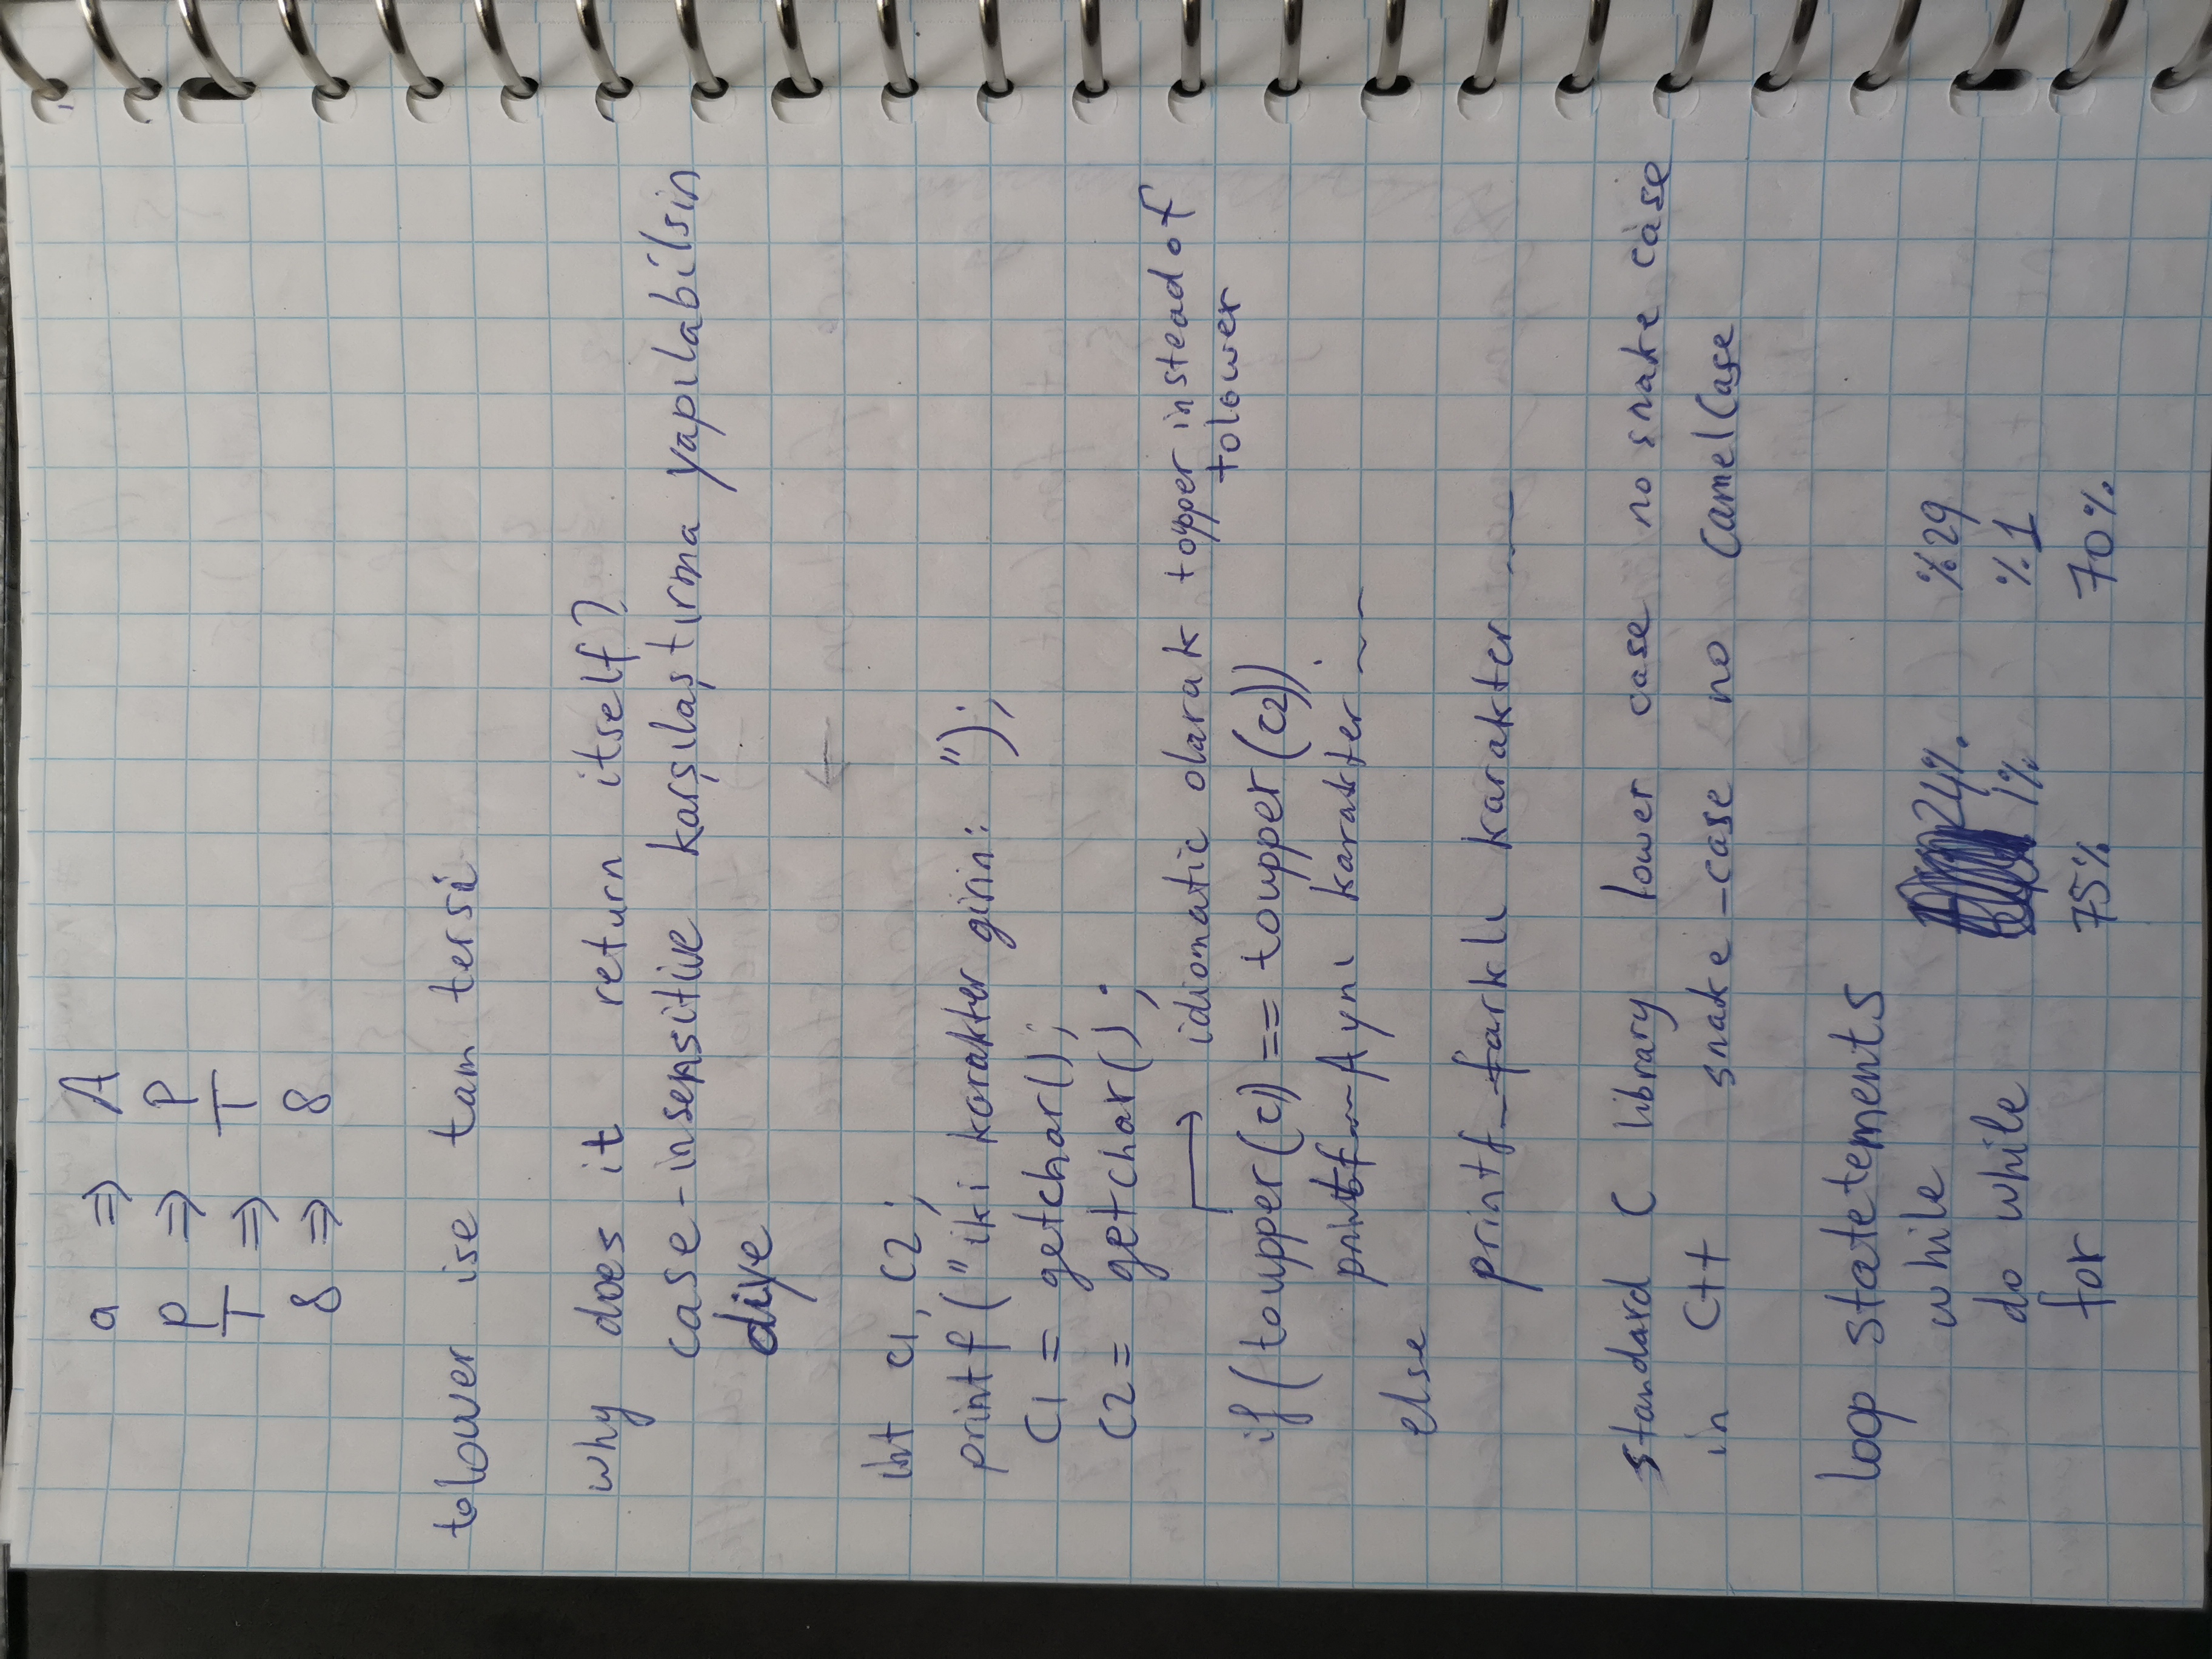 a ⇒ A
p ⇒ P
T ⇒ T
8 ⇒ 8
tolower ise tam tersi
why does it return itself?
case-insensitive karşılaştırma yapılabilsin
diye
int c1, c2;
printf("iki karakter girin: ");
C1 = getchar();
C2 = getchar();
→ idiomatic olarak toupper instead of
tolower
if(toupper(c1) == toupper(c2))
printf Aynı karakter
else
printf farklı karakter
standard C library lower case no snake case
in C++ snake-case no CamelCase
loop statetements
while 24% %29
do while 1% %1
for 75% 70%